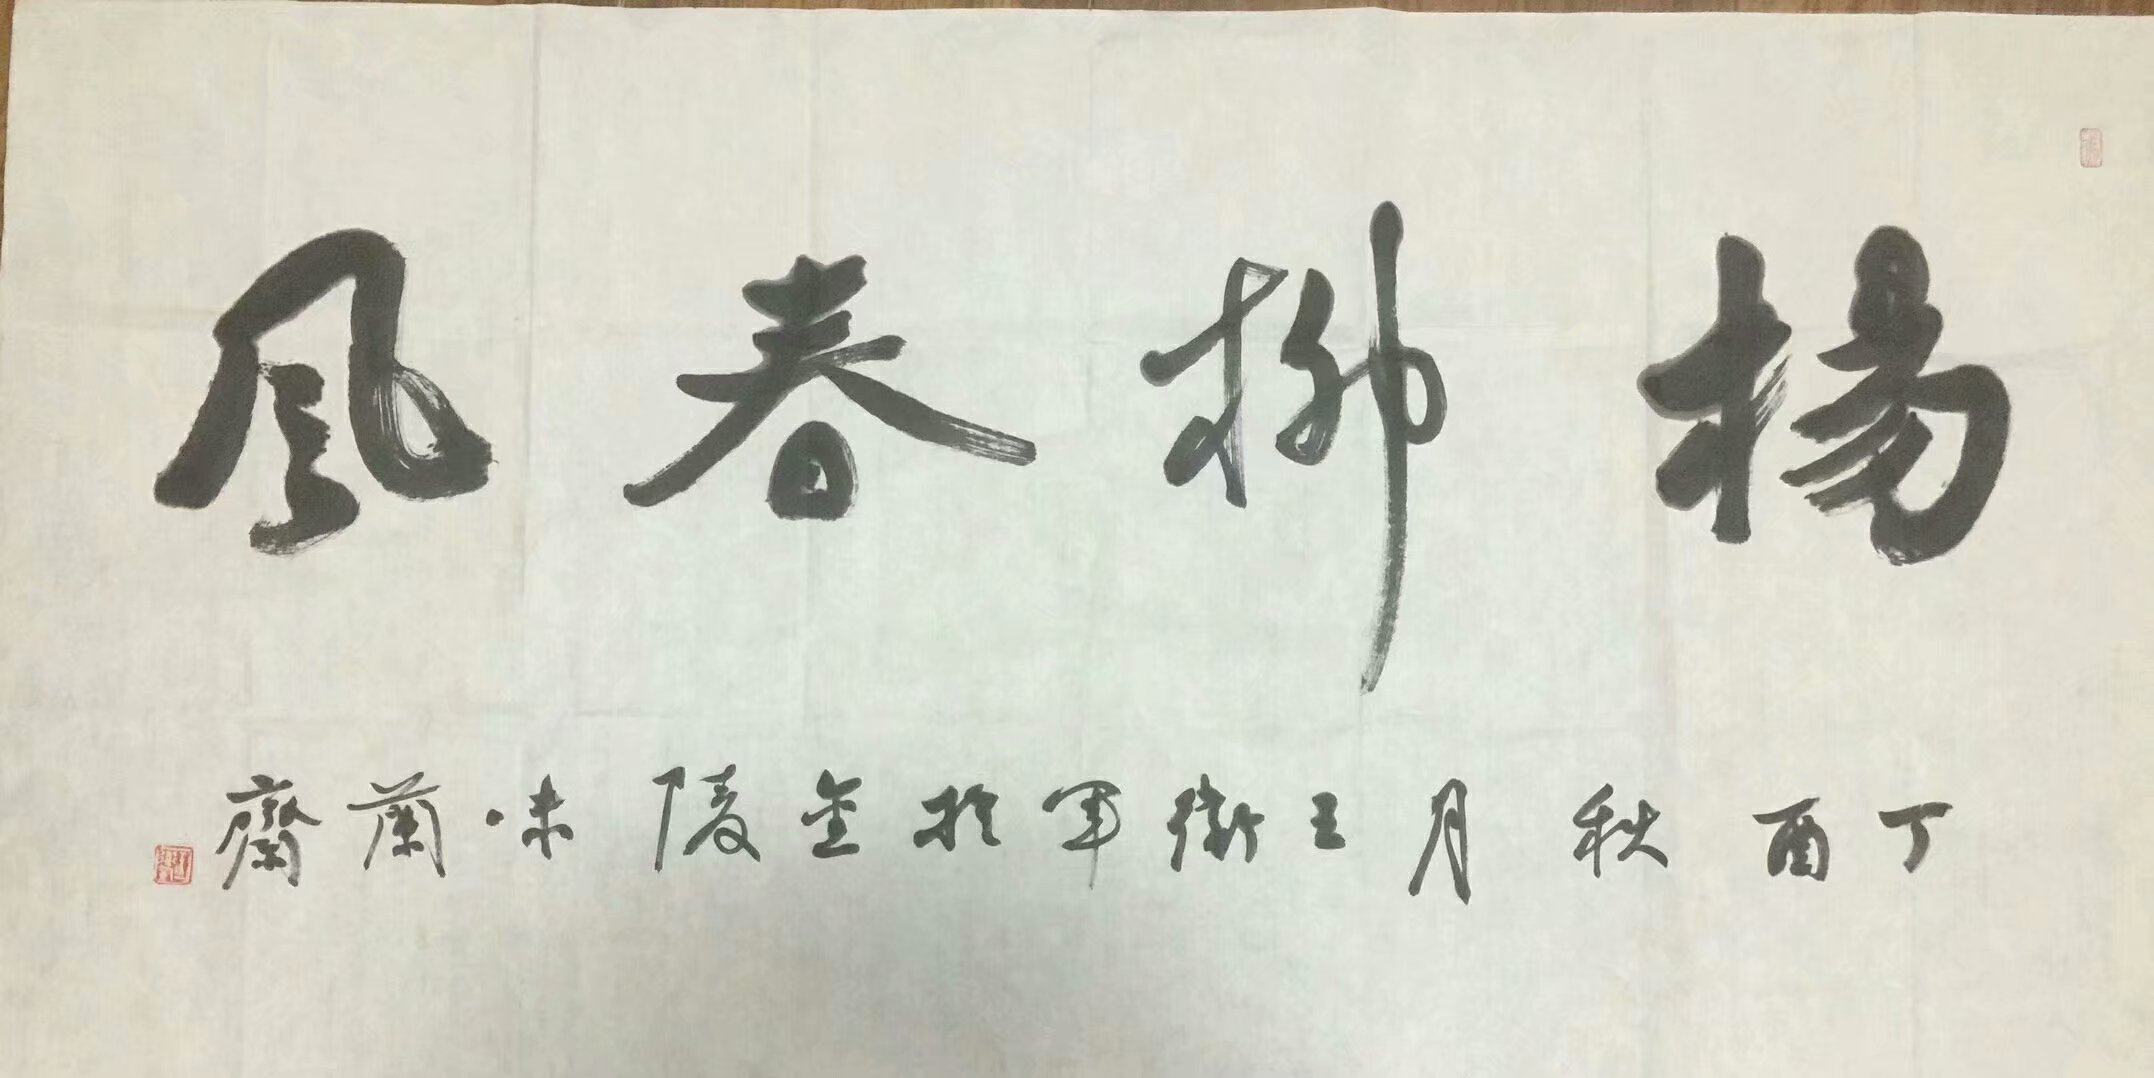 楊柳春風
丁酉秋月王衛軍於金陵味蘭齋